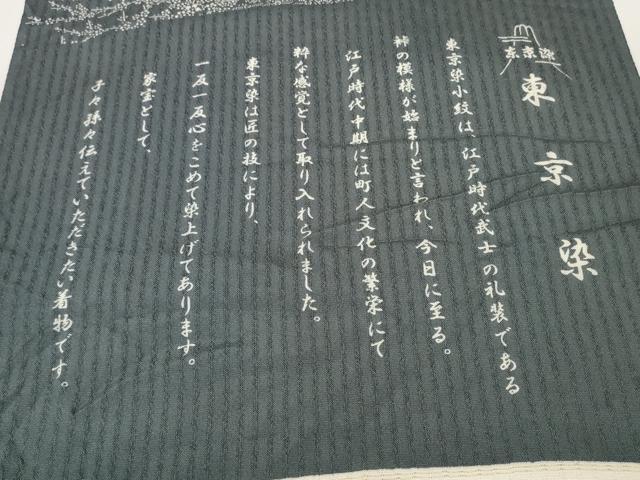 東京染
東京染
東京染小紋は、江戸時代武士の礼装である
裃の模様が始まりと言われ、今日に至る。
江戸時代中期には町人文化の繁栄にて
粋な感覚として取り入れられました。
東京染は匠の技により、
一反一反心をこめて染上げてあります。
家宝として、
子々孫々伝えていただきたい着物です。